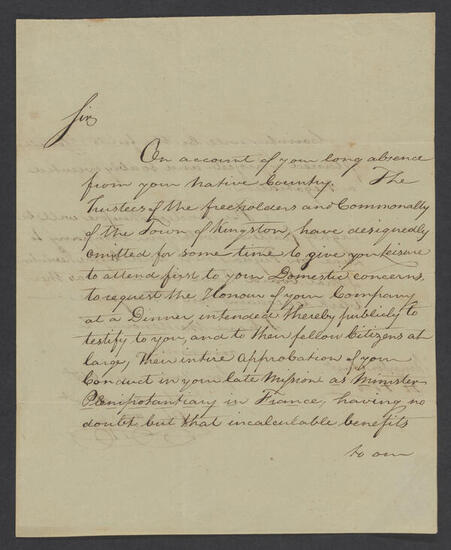 Sir,
On account of your long absence
from your Native Country. The
Trustees of the freeholders and Commonalty
of the Town of Kingston, have designedly
omitted for some time to give you leisure
to attend first to your Domestic concerns,
to request the Honour of your Company
at a Dinner intended thereby publicly to
testify to you, and to their fellow Citizens at
large, their intire approbation of your
Conduct in your late Mission as Minister
Plenipotantiary in France, having no
doubt but that incalculable benefits
to our